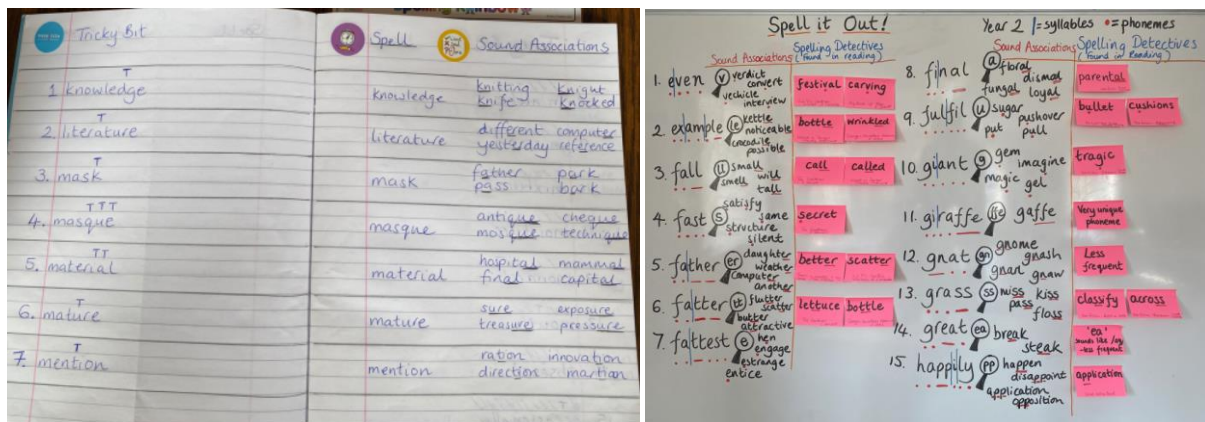 Tricky Bit
T
1 knowledge
T
2. literature
T
3. mask
T T T
4. masque
T T
5. material
T
6. mature
T
7. mention
Spell
Sound Associations
knowledge
knitting knight
knife knocked
literature
different computer
yesterday reference
mask
father park
pass bark
masque
antique cheque
mosque technique
material
hospital mammal
final capital
mature
sure exposure
treasure pressure
mention
ration innovation
direction martian
Spell it Out!
Year 2 /=syllables •=phonemes
Sound Associations
Spelling Detectives
(Found in reading)
1. even
v
verdict
convert
vechicle
interview
festival
carving
2. example
le
kettle
noticeable
crocodile
possible
bottle
wrinkled
3. fall
ll
small
smell will
tall
call
called
4. fast
s
satisfy
same
structure
silent
secret
5. father
er
daughter
weather
computer
another
better
scatter
6. fatter
tt
flutter
scatter
butter
attractive
lettuce
bottle
7. fattest
e
hen
engage
estrange
entice
Sound Associations
Spelling Detectives
(Found in Reading)
8. final
a
floral
dismal
fungal loyal
parental
9. fulfil
u
sugar
pushover
put pull
bullet
cushions
10. giant
g
gem
imagine
magic gel
tragic
11. giraffe
ffe
gaffe
Very unique
phoneme
12. gnat
gn
gnome
gnash
gnarl gnaw
Less
frequent
13. grass
ss
miss kiss
pass
floss
classify
across
14. great
ea
break
steak
'ea'
sounds like /ay/
-less frequent
15. happily
pp
happen
disappoint
application
opposition
application